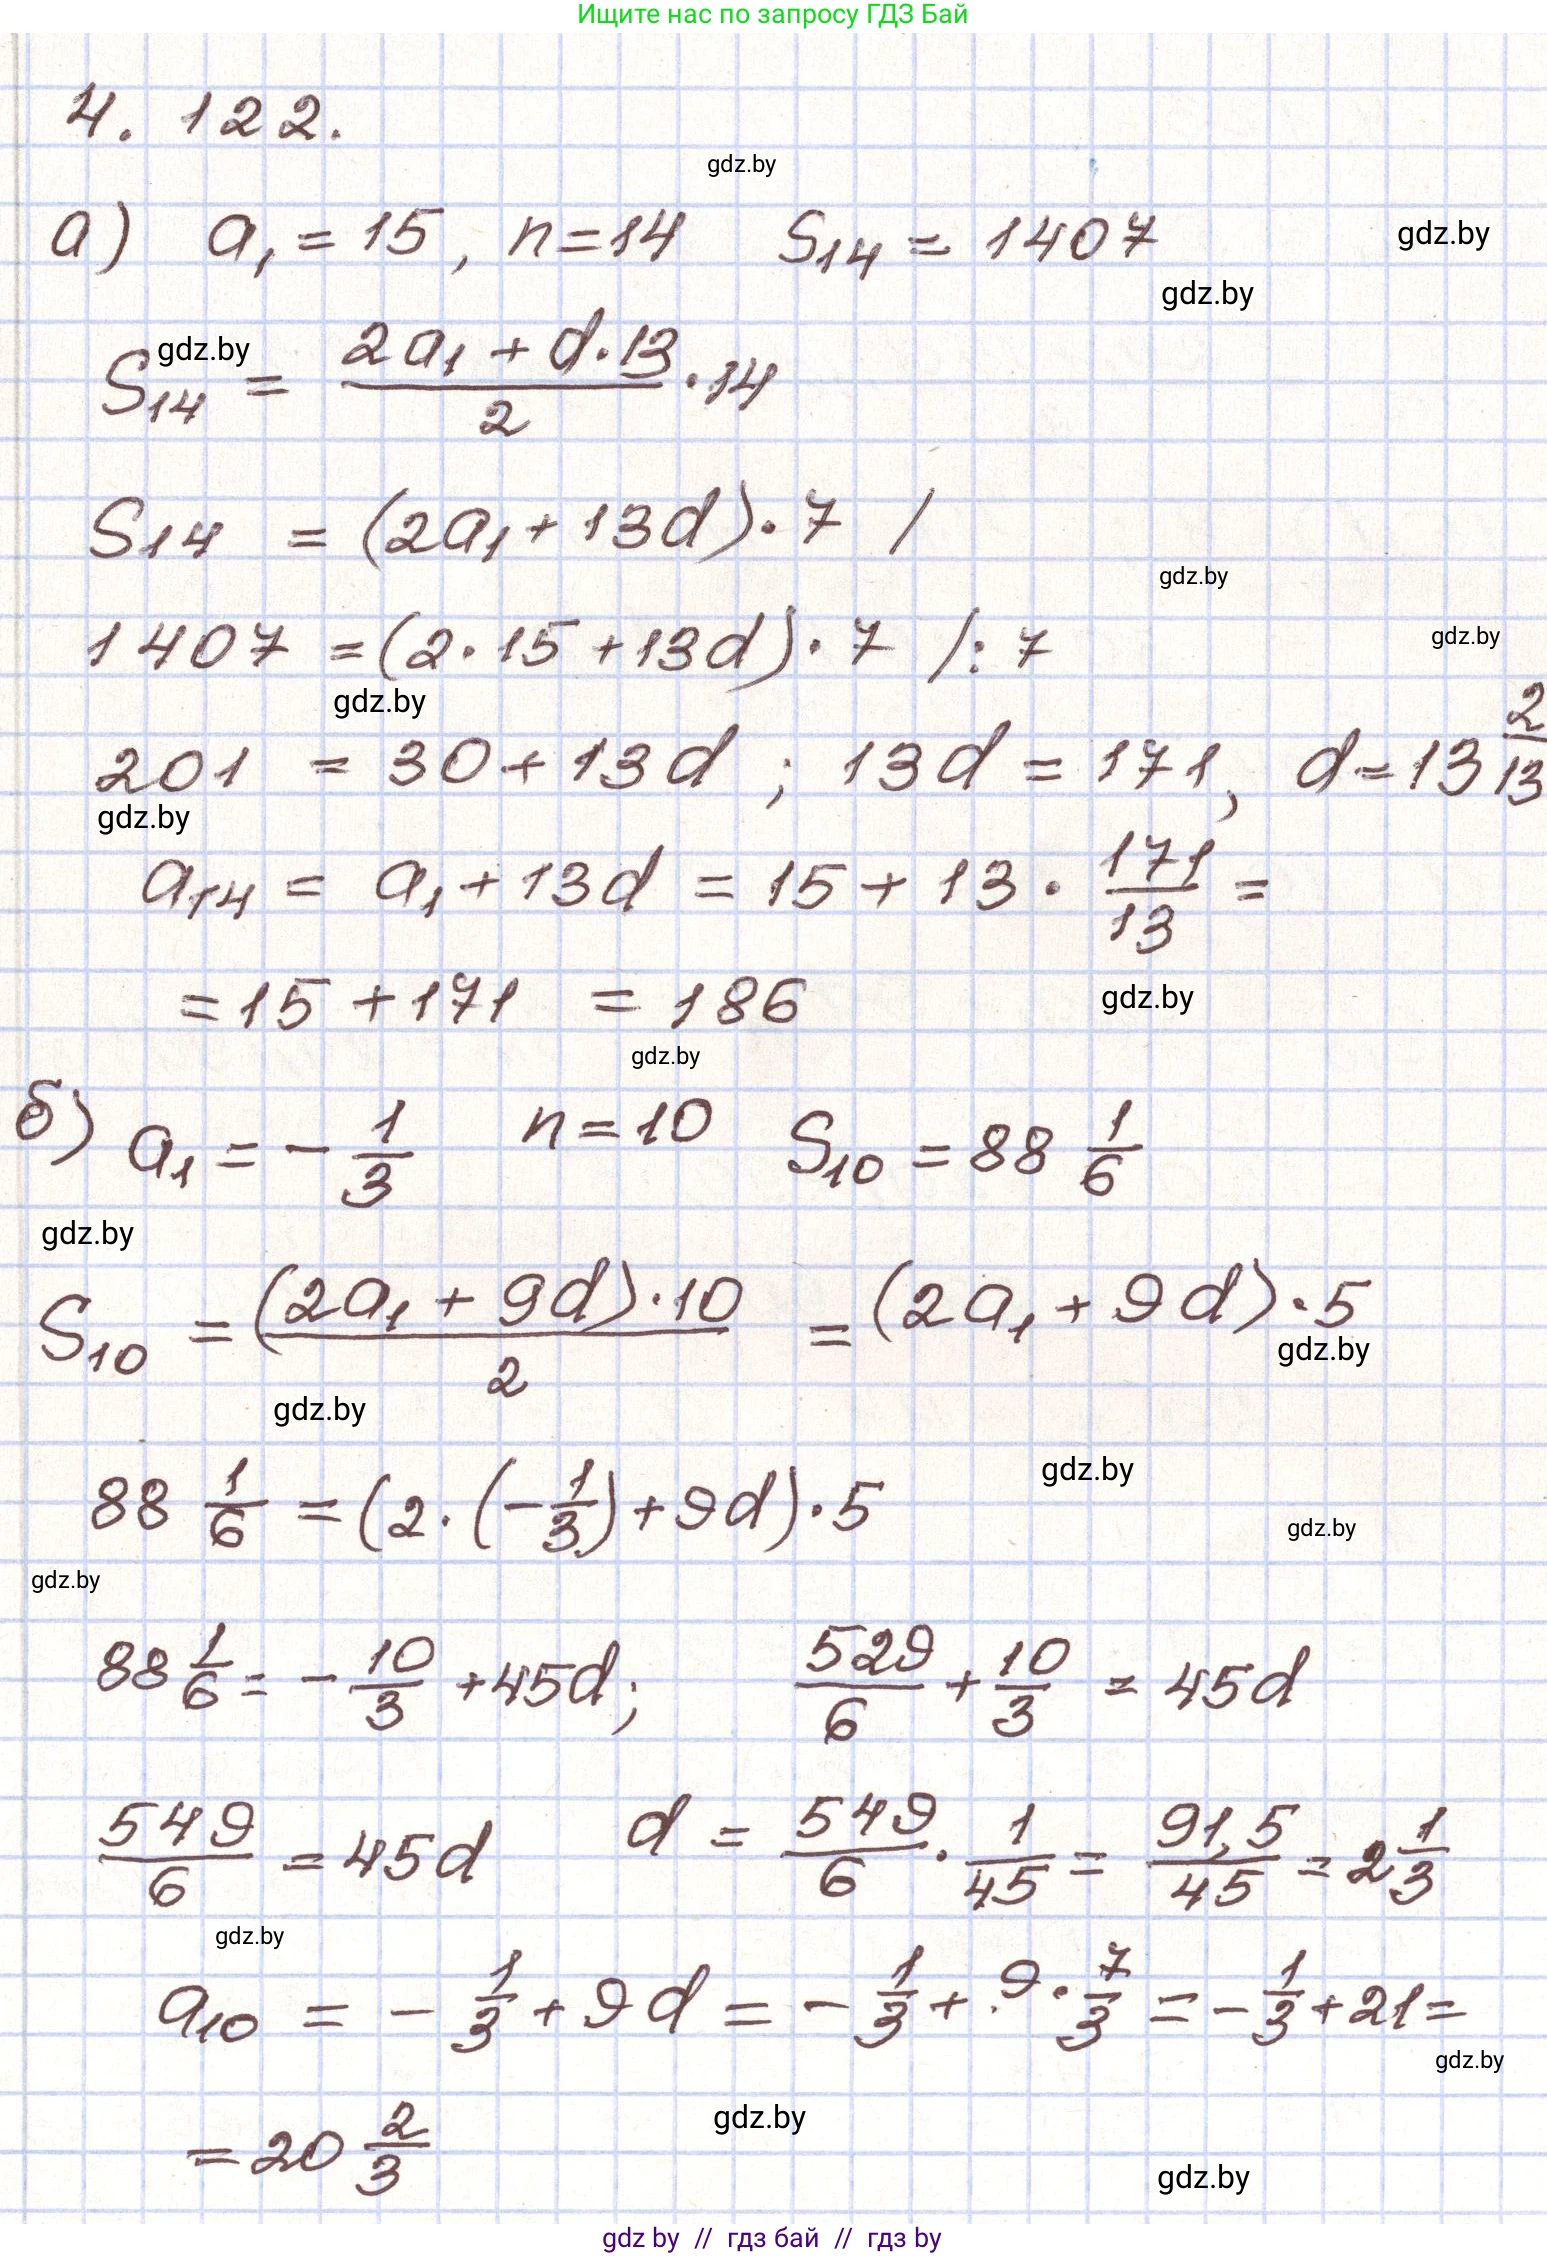 Ищите нас по запросу ГДЗ Бай
4. 122.
gdz.by
а) a₁ = 15, n = 14 S₁₄ = 1407
gdz.by
gdz.by
gdz.by
S₁₄ = (2a₁ + d·13)/2 · 14
S₁₄ = (2a₁ + 13d) · 7 /
gdz.by
1407 = (2·15 + 13d) · 7 /: 7
gdz.by
gdz.by
201 = 30 + 13d ; 13d = 171, d = 13 2/13
gdz.by
a₁₄ = a₁ + 13d = 15 + 13 · 171/13 =
= 15 + 171 = 186
gdz.by
gdz.by
б) a₁ = - 1/3 n = 10 S₁₀ = 88 1/6
gdz.by
S₁₀ = (2a₁ + 9d)·10/2 = (2a₁ + 9d)·5
gdz.by
gdz.by
gdz.by
88 1/6 = (2·(-1/3) + 9d)·5
gdz.by
gdz.by
88 1/6 = - 10/3 + 45d; 529/6 + 10/3 = 45d
549/6 = 45d d = 549/6 · 1/45 = 91,5/45 = 2 1/3
gdz.by
a₁₀ = - 1/3 + 9d = - 1/3 + 9 · 7/3 = - 1/3 + 21 =
gdz.by
= 20 2/3
gdz.by
gdz.by
gdz by // гдз бай // гдз by